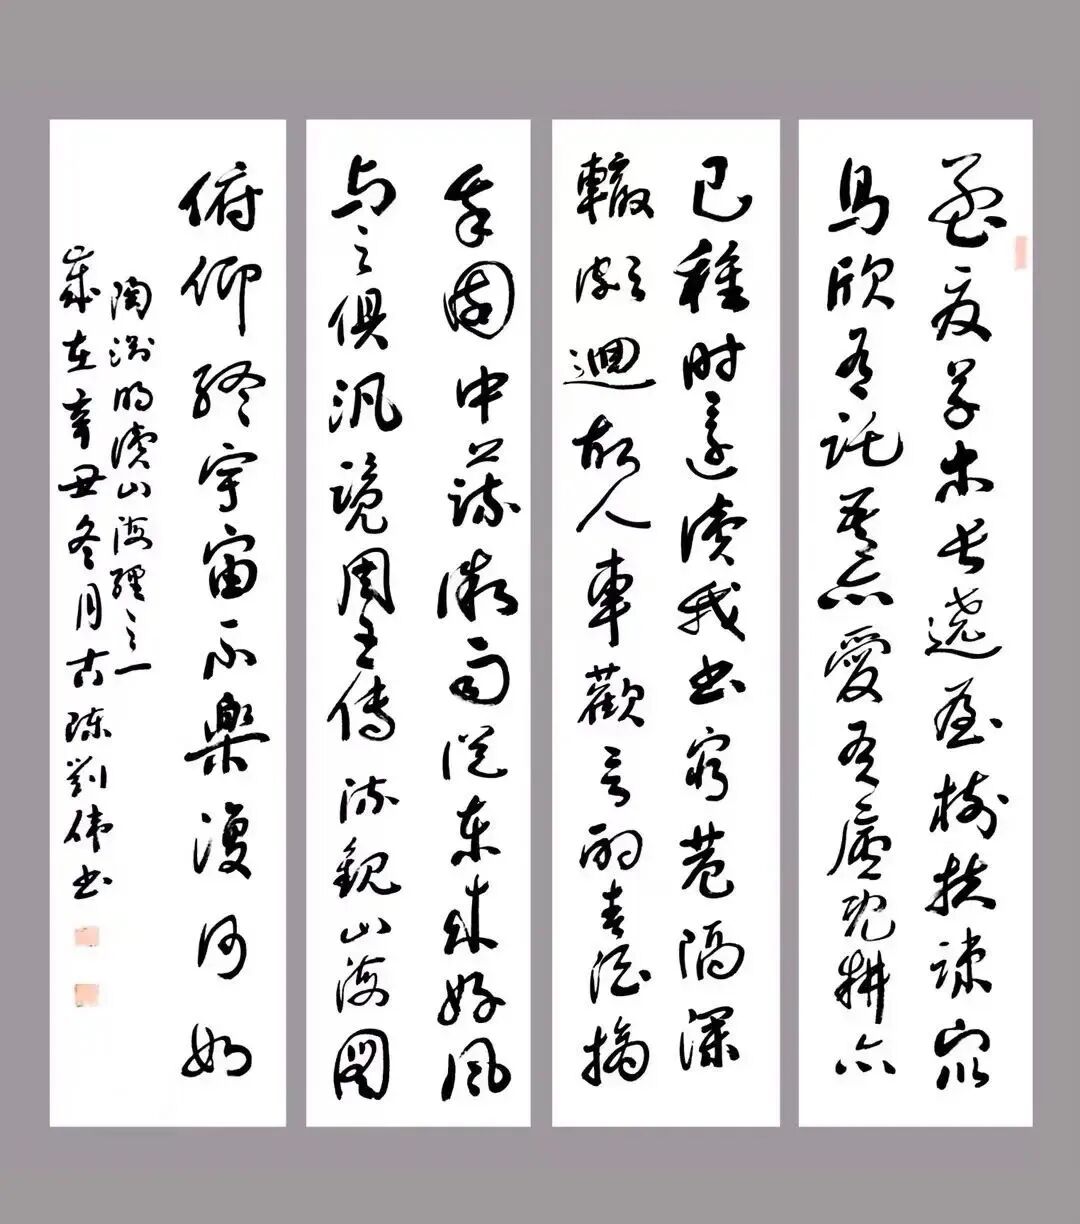 孟夏草木长遶屋树扶疎众
鸟欣有託吾亦愛吾庐既耕亦
已種时還读我书穷巷隔深
轍頗迴故人車歡言酌春酒摘
我园中蔬微雨从东来好风
与之俱汎览周王傳流觀山海图
俯仰终宇宙不樂復何如
陶渊明读山海經之一
歲在辛丑冬月古陈劉伟书